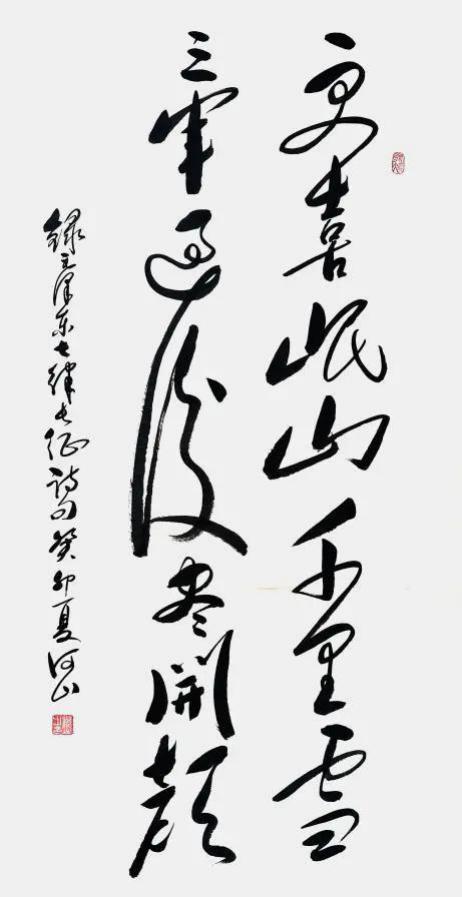 更喜岷山千里雪
三军过後尽開颜
録毛泽东七律长征诗句癸卯夏河山